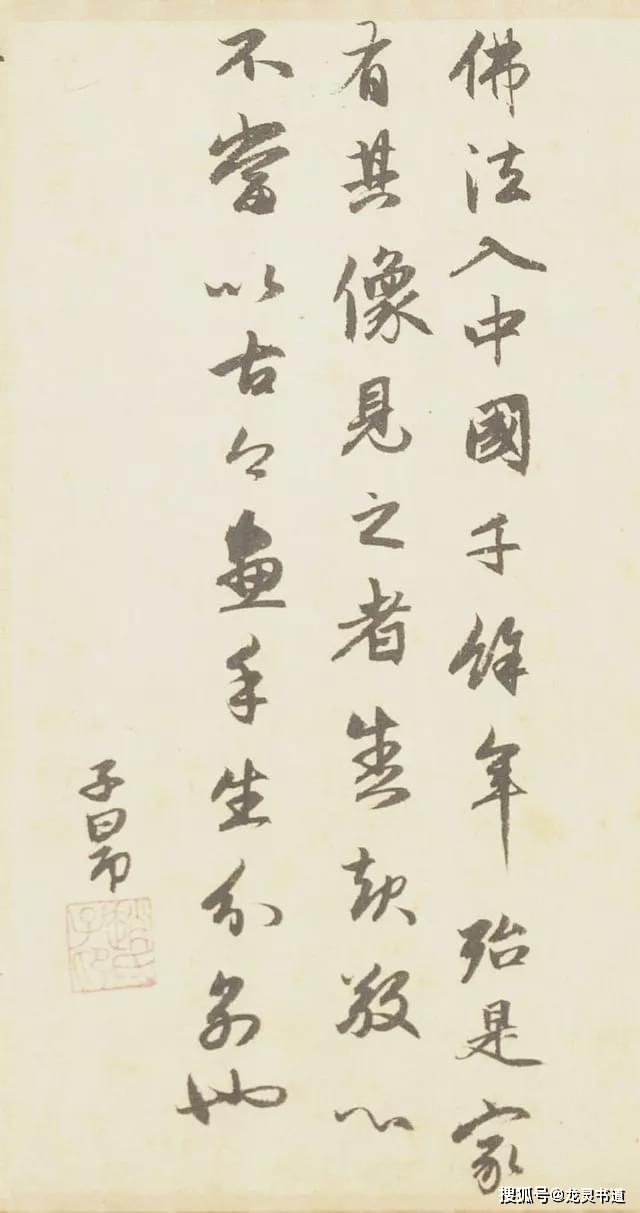 佛法入中國千餘年殆是家
有其像見之者生歡敬心
不當以古今畫手生分別也
子昂
趙氏子昂
搜狐号@龙灵书道